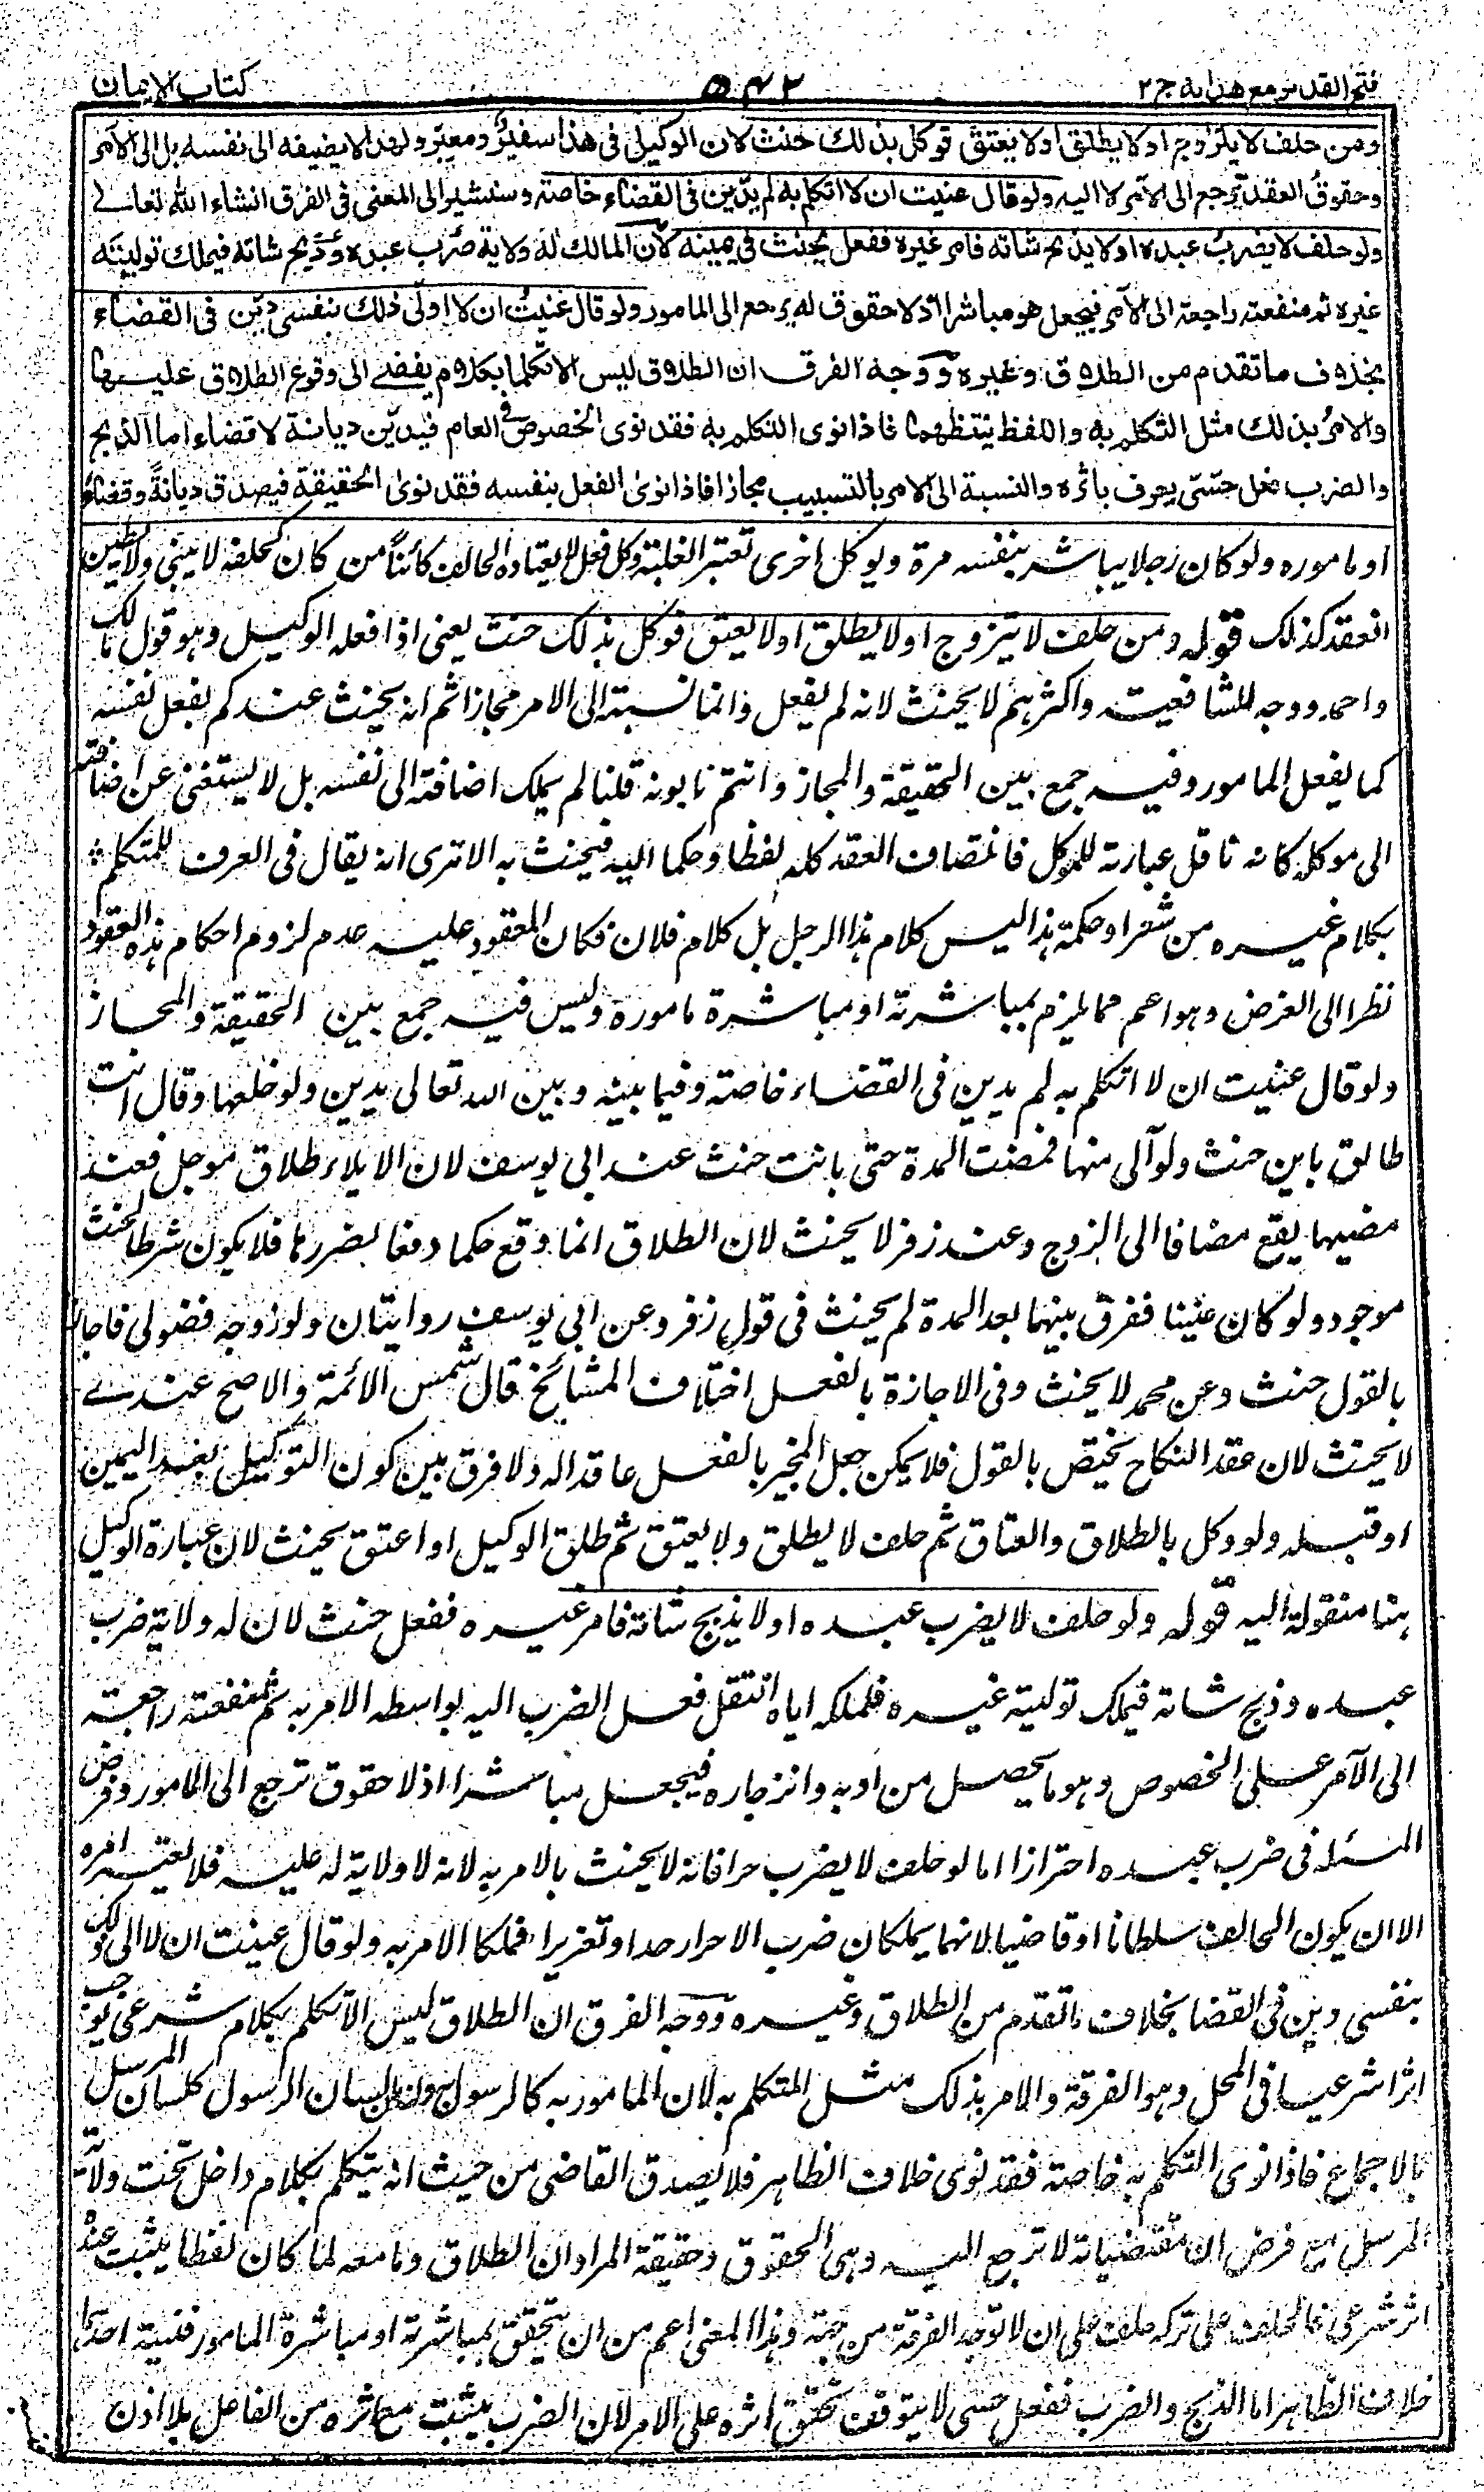 فتح القدير مع هدايه ج ٢
٥٤٢
كتاب الايمان
ومن حلف لا يتزوج او لا يطلق او لا يعتق فوكل بذلك حنث لان الوكيل فى هذا سفير ومعبر ولهذا لا يضيفه الى نفسه بل الى الآمر
وحقوق العقد ترجع الى الآمر لا اليه ولو قال عنيت ان لا اتكلم به لم يدين فى القضاء خاصة وسنشير الى المعنى فى الفرق انشاء الله تعالى
ولو حلف لا يضرب عبده او لا يذبح شاته فامر غيره ففعل يحنث فى يمينه لان المالك له ولاية ضرب عبده وذبح شاته فيملك توليته
غيره ثم منفعته راجعة الى الآمر فيجعل هو مباشرا اذ لا حقوق له يرجع الى المامور ولو قال عنيت ان لا اولى ذلك بنفسى دين فى القضاء
بخلاف ما تقدم من الطلاق وغيره ووجه الفرق ان الطلاق ليس الا تكلما بكلام يفضى الى وقوع الطلاق عليها
والامر بذلك مثل التكلم به واللفظ ينتظمهما فاذا نوى التكلم به فقد نوى الخصوص فى العام فيدين ديانة لا قضاء اما الذبح
والضرب فعل حسى يعرف باثره والنسبة الى الامر بالتسبيب مجازا فاذا نوى الفعل بنفسه فقد نوى الحقيقة فيصدق ديانة وقضاء
او ماموره ولو كان رجلا يباشر بنفسه مرة ويوكل اخرى تعتبر الغلبة وكل فعل لا يعتاده الحالف كائنا من كان كحلفه لا يبنى ولا يطين
انعقد كذلك قوله ومن حلف لا يتزوج او لا يطلق او لا يعتق فوكل بذلك حنث يعنى اذا فعله الوكيل وهو قول مالك
واحمد ووجه للشافعية واكثرهم لا يحنث لانه لم يفعل وانما نسبته الى الامر مجازا ثم انه يحنث عندكم بفعل نفسه
كما بفعل المامور وفيه جمع بين الحقيقة والمجاز وانتم تابونه قلنا لم يملك اضافته الى نفسه بل لا يستغنى عن اضافته
الى موكله كانه ناقل عبارته للموكل فانضاف العقد كله لفظا وحكما اليه فيحنث به الا ترى انه يقال فى العرف للمتكلم
بكلام غيره من شعر او حكمة هذا ليس كلام هذا الرجل بل كلام فلان فكان المعقود عليه عدم لزوم احكام هذه العقود
نظرا الى الغرض وهو اعم مما يلزم بمباشرته او مباشرة ماموره وليس فيه جمع بين الحقيقة والمجاز
ولو قال عنيت ان لا اتكلم به لم يدين فى القضاء خاصة وفيما بينه وبين الله تعالى يدين ولو خلعها وقال انت
طالق باين حنث ولو آلى منها فمضت المدة حتى بانت حنث عند ابى يوسف لان الايلاء طلاق موجل فعند
مضيها يقع مضافا الى الزوج وعند زفر لا يحنث لان الطلاق انما وقع حكما دفعا لضررها فلا يكون شرط الحنث
موجودا ولو كان عنينا ففرق بينهما بعد المدة لم يحنث فى قول زفر وعن ابى يوسف روايتان ولو زوجه فضولى فاجاز
بالقول حنث وعن محمد لا يحنث وفى الاجازة بالفعل اختلاف المشائخ قال شمس الائمة والاصح عندى
لا يحنث لان عقد النكاح يختص بالقول فلا يمكن جعل المجيز بالفعل عاقدا له ولا فرق بين كون التوكيل بعد اليمين
او قبله ولو وكل بالطلاق والعتاق ثم حلف لا يطلق ولا يعتق ثم طلق الوكيل او اعتق يحنث لان عبارة الوكيل
هنا منقولة اليه قوله ولو حلف لا يضرب عبده او لا يذبح شاته فامر غيره ففعل حنث لان له ولاية ضرب
عبده وذبح شاته فيملك تولية غيره فلملكه اياه انتقل فعل الضرب اليه بواسطه الامر به ثم منفعته راجعة
الى الآمر على الخصوص وهو ما يحصل من ادبه وانزجاره فيجعل مباشرا اذ لا حقوق ترجع الى المامور وفرض
المسئلة فى ضرب عبده احترازا اما لو حلف لا يضرب حرا فانه لا يحنث بالامر به لانه لا ولاية له عليه فلا يعتبر امره
الا ان يكون الحالف سلطانا او قاضيا لانهما يملكان ضرب الاحرار حدا وتعزيرا فملكا الامر به ولو قال عنيت ان لا الى ذلك
بنفسى دين فى القضا بخلاف ما تقدم من الطلاق وغيره ووجه الفرق ان الطلاق ليس الا تكلم بكلام شرعى يوجب
اثرا شرعيا فى المحل وهو الفرقة والامر بذلك مثل المتكلم به لان المامور به كالرسول به ولسان الرسول كلسان المرسل
بالاجماع فاذا نوى التكلم به خاصة فقد نوى خلاف الظاهر فلا يصدق القاضى من حيث انه يتكلم بكلام داخل تحت ولاية
المرسل مع فرض ان مقتضياته لا ترجع اليه وهى الحقوق وحقيقة المراد ان الطلاق وما معه لما كان لفظا يثبت عنده
اثر شرعى فالحلف على تركه حلف على ان لا توجد الفرقة من جهته وهذا المعنى اعم من ان يتحقق بمباشرته او مباشرة المامور فنية احدهما
خلاف الظاهر اما الذبح والضرب ففعل حسى لا يتوقف تحقق اثره على الامر لان الضرب يثبت مع اثره من الفاعل بلا اذن